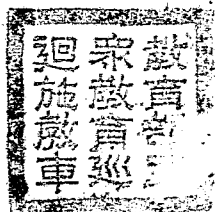 教育部
眾教育巡
迴施教車